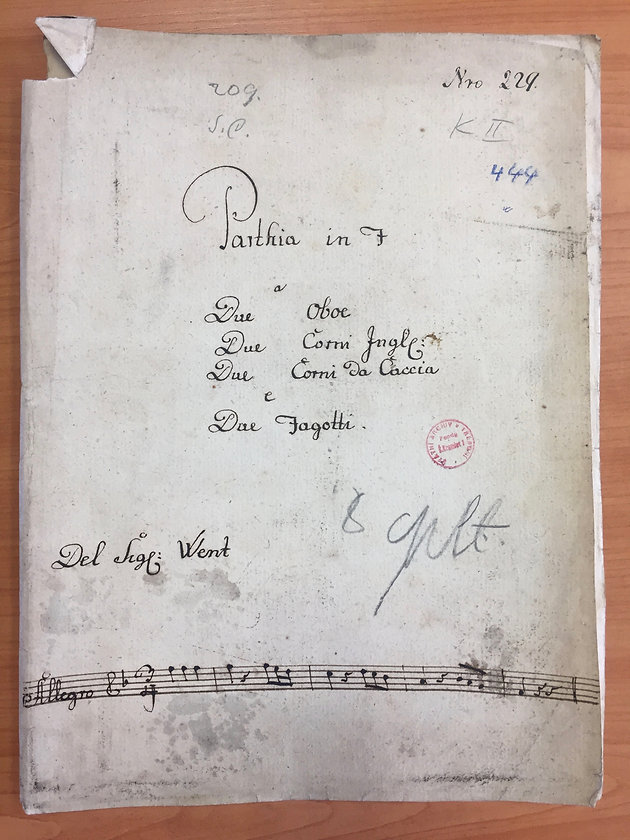 Nro 229.
209.
S.C.
K II
444
Parthia in F
a
Due Oboe
Due Corni Ingle:
Due Corni Da Caccia
e
Due Fagotti.
8
Del Sigre: Went
Allegro